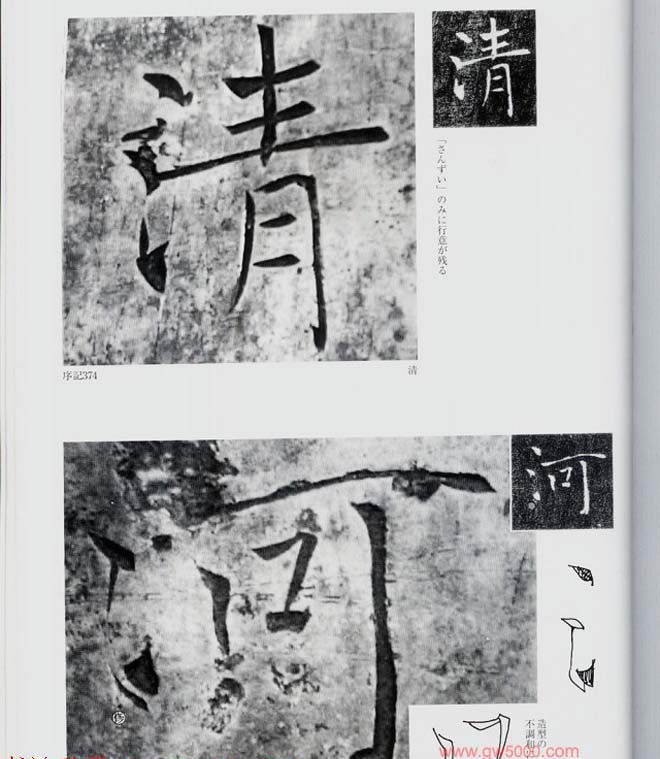 清
清
「さんずい」のみに行意が残る
序記374
清
河
河
造型の
不調和
www.gw5000.com